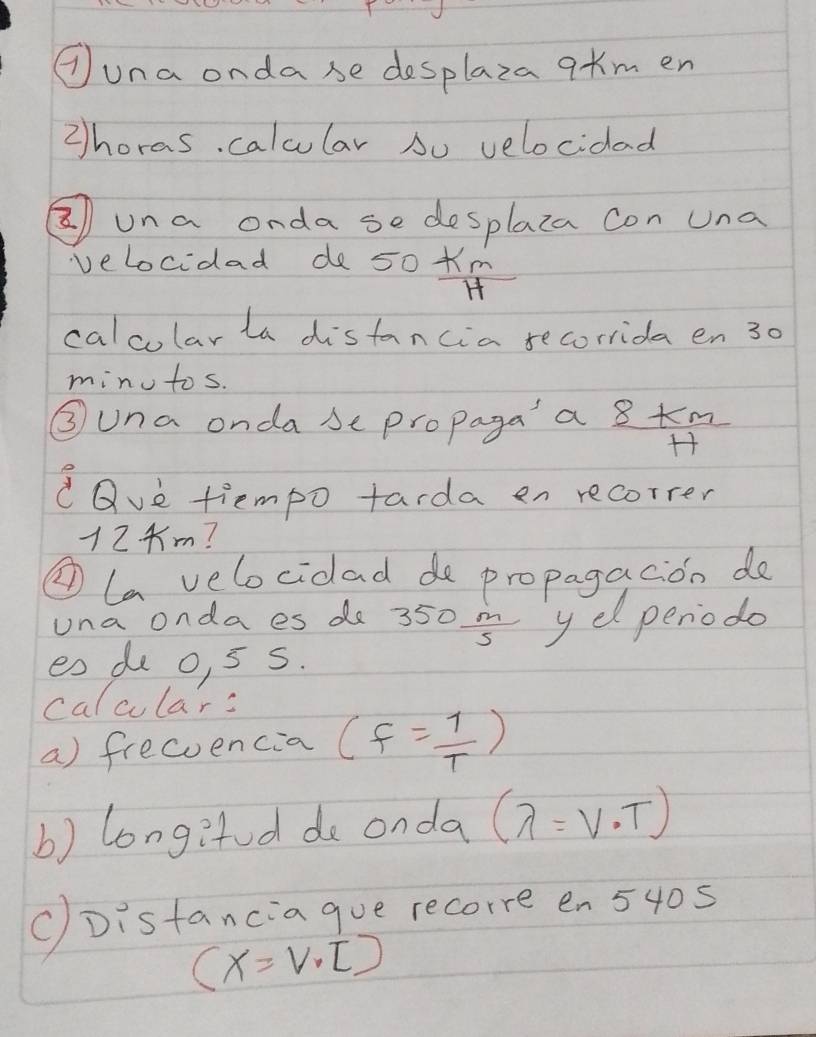 ① una onda se desplaza 9Km en
2)horas.calcular su velocidad
② una onda se desplaza con una
velocidad de 50 Km/H
calcular la distancia recorrida en 30
minutos.
③ una onda se propaga' a 8 Km/H
¿Què tiempo tarda en recorrer
12Km?
④ la velocidad de propagación de
una onda es de 350 m/s y el periodo
es de 0,5 s.
calcular:
a) frecuencia (f = 1/T)
b) longitud de onda (λ = V.T)
c) Distancia que recorre en 540s
(X = V.t)